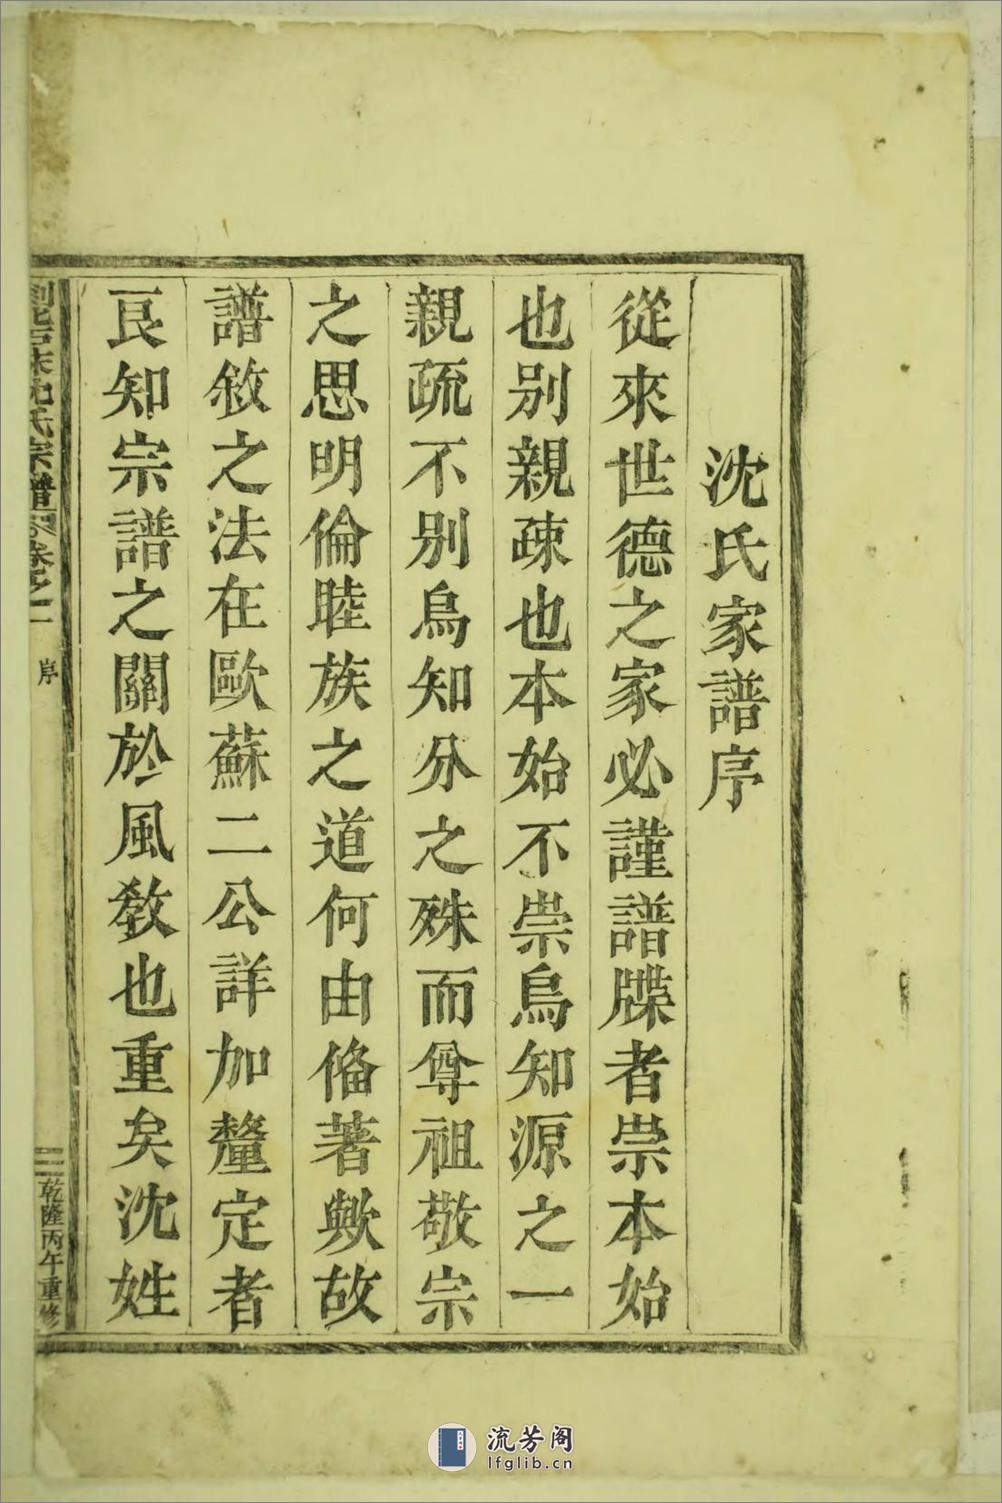 沈氏家譜序
從來世德之家必謹譜牒者崇本始
也別親疎也本始不崇烏知源之一
親疏不別烏知分之殊而尊祖敬宗
之思明倫睦族之道何由偹著歟故
譜敘之法在歐蘇二公詳加釐定者
良知宗譜之關於風敎也重矣沈姓
沈氏宗譜 卷之一 序 二 乾隆丙午重修
流芳阁
lfglib.cn